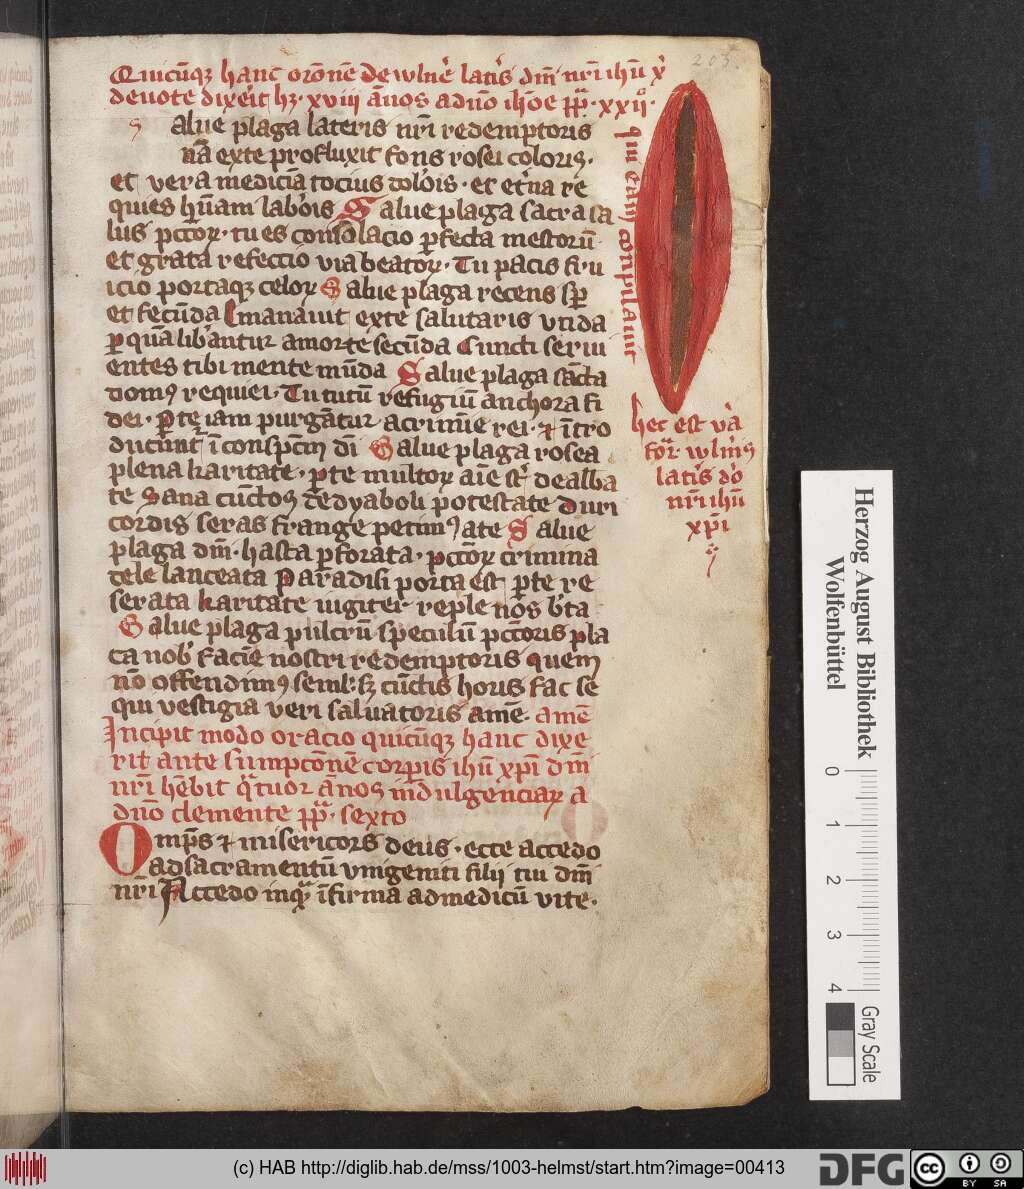 203.
Quicūqꝫ hanc oronē de wlne᷑ lat̾is dn̄i nr̄i ihū x̄
deuote dixe᷑it hꝫ · xviii ānos a dūo ih̄oe pp̄ · xxii ·
qui eam conpilauit
Salue plaga lateris nr̄i redemptoris
nā ex te profluxit fons rosei coloris ·
et vera medicīa tocius dolo᷑is · et et̾na re
quies hūam labo᷑is Salue plaga sacra sa
lus pc̄torꝝ · tu es consolacio ꝑfecta mestorū
et grata refeccio via beatorꝝ · Tu pacis fru
icio portaqꝫ celorꝝ Salue plaga recens sꝑ
et fecūda Emanauit ex te salutaris vnda
ꝑ quā lib̾antur a morte secūda Cuncti serui
entes tibi mente mūda Salue plaga sācta
domꝰ requiei · Tu tutū refugiū anchora fi
dei · Ꝑ te iam purgātur a crimīe rei · ⁊ ītro
ducunt᷑ ī conspc̄m dī Salue plaga rosea
plena karitate · ꝑ te multorꝝ aīe st̄ dealba
te Sana cūctos de dyaboli potestate Duri
cordis seras frange petimꝰ a te Salue
plaga dn̄i · hasta ꝑforata · pc̄torꝝ crimina
dele lanceata Paradisi porta est ꝑ te re
serata karitate iugiter reple nos b̄ta
Salue plaga pulcrū speculū pc̄toris pla
ca nob̾ faciē nostri redemptoris quem
nō offendimꝰ semꝑ sꝫ cūctis horis fac se
qui vestigia veri saluatoris amē · amē
Incipit modo oracio quicūqꝫ hanc dixe
rit ante sumpcōnē corꝑis ihū xp̄i dn̄i
nr̄i hēbit qᷓtuor ānos indulgenciarꝝ a
dn̄o clemente pp̄ · sexto
Omp̄s ⁊ misericors deus · ecce accedo
ad sacramentū vnigeniti filij tui dn̄i
nr̄i Accedo inqᷓ īfirmꝰ ad medicū vite ·
hec est v̾a
for᷑ wln̾is
lat̾is dō
nr̄i ihū
xp̄i
Herzog August Bibliothek
Wolfenbüttel
0 1 2 3 4
Gray Scale
(c) HAB http://diglib.hab.de/mss/1003-helmst/start.htm?image=00413
DFG
cc
BY SA